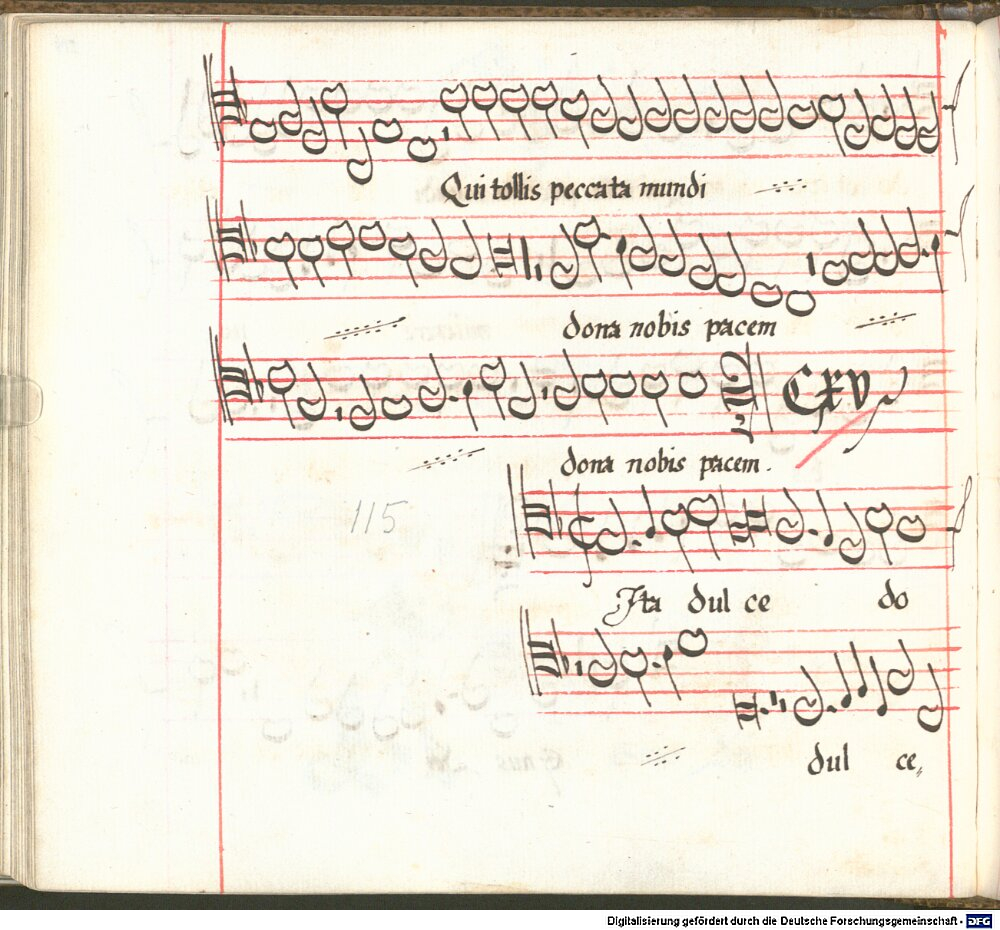 Qui tollis peccata mundi
dona nobis pacem
CXV
dona nobis pacem.
115
Ita dul ce do
dul ce,
Digitalisierung gefördert durch die Deutsche Forschungsgemeinschaft - DFG